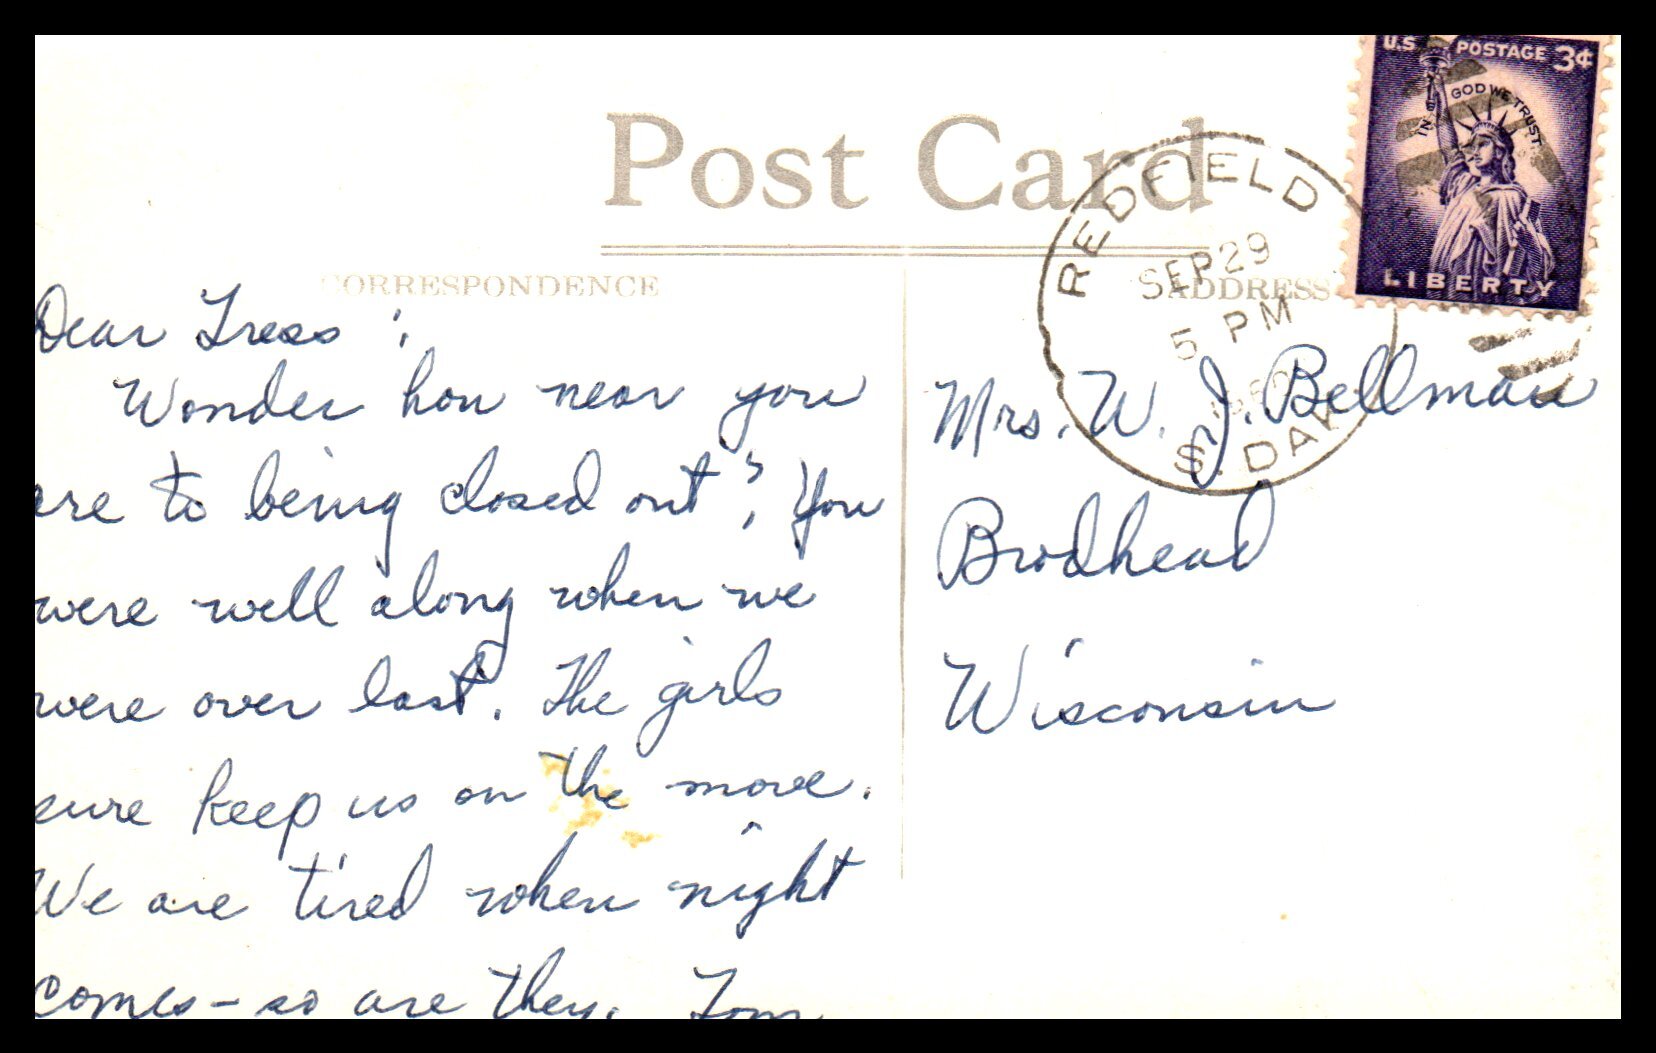 U.S. POSTAGE 3¢
IN GOD WE TRUST
LIBERTY
Post Card
REDFIELD
SEP 29
5 PM
S. DAK
CORRESPONDENCE
ADDRESS
Dear Tress:
Wonder how near you
are to being closed out? You
were well along when we
were over last. The girls
sure keep us on the move.
We are tired when night
comes - so are they. Tom
Mrs. W. J. Bellman
Brodhead
Wisconsin